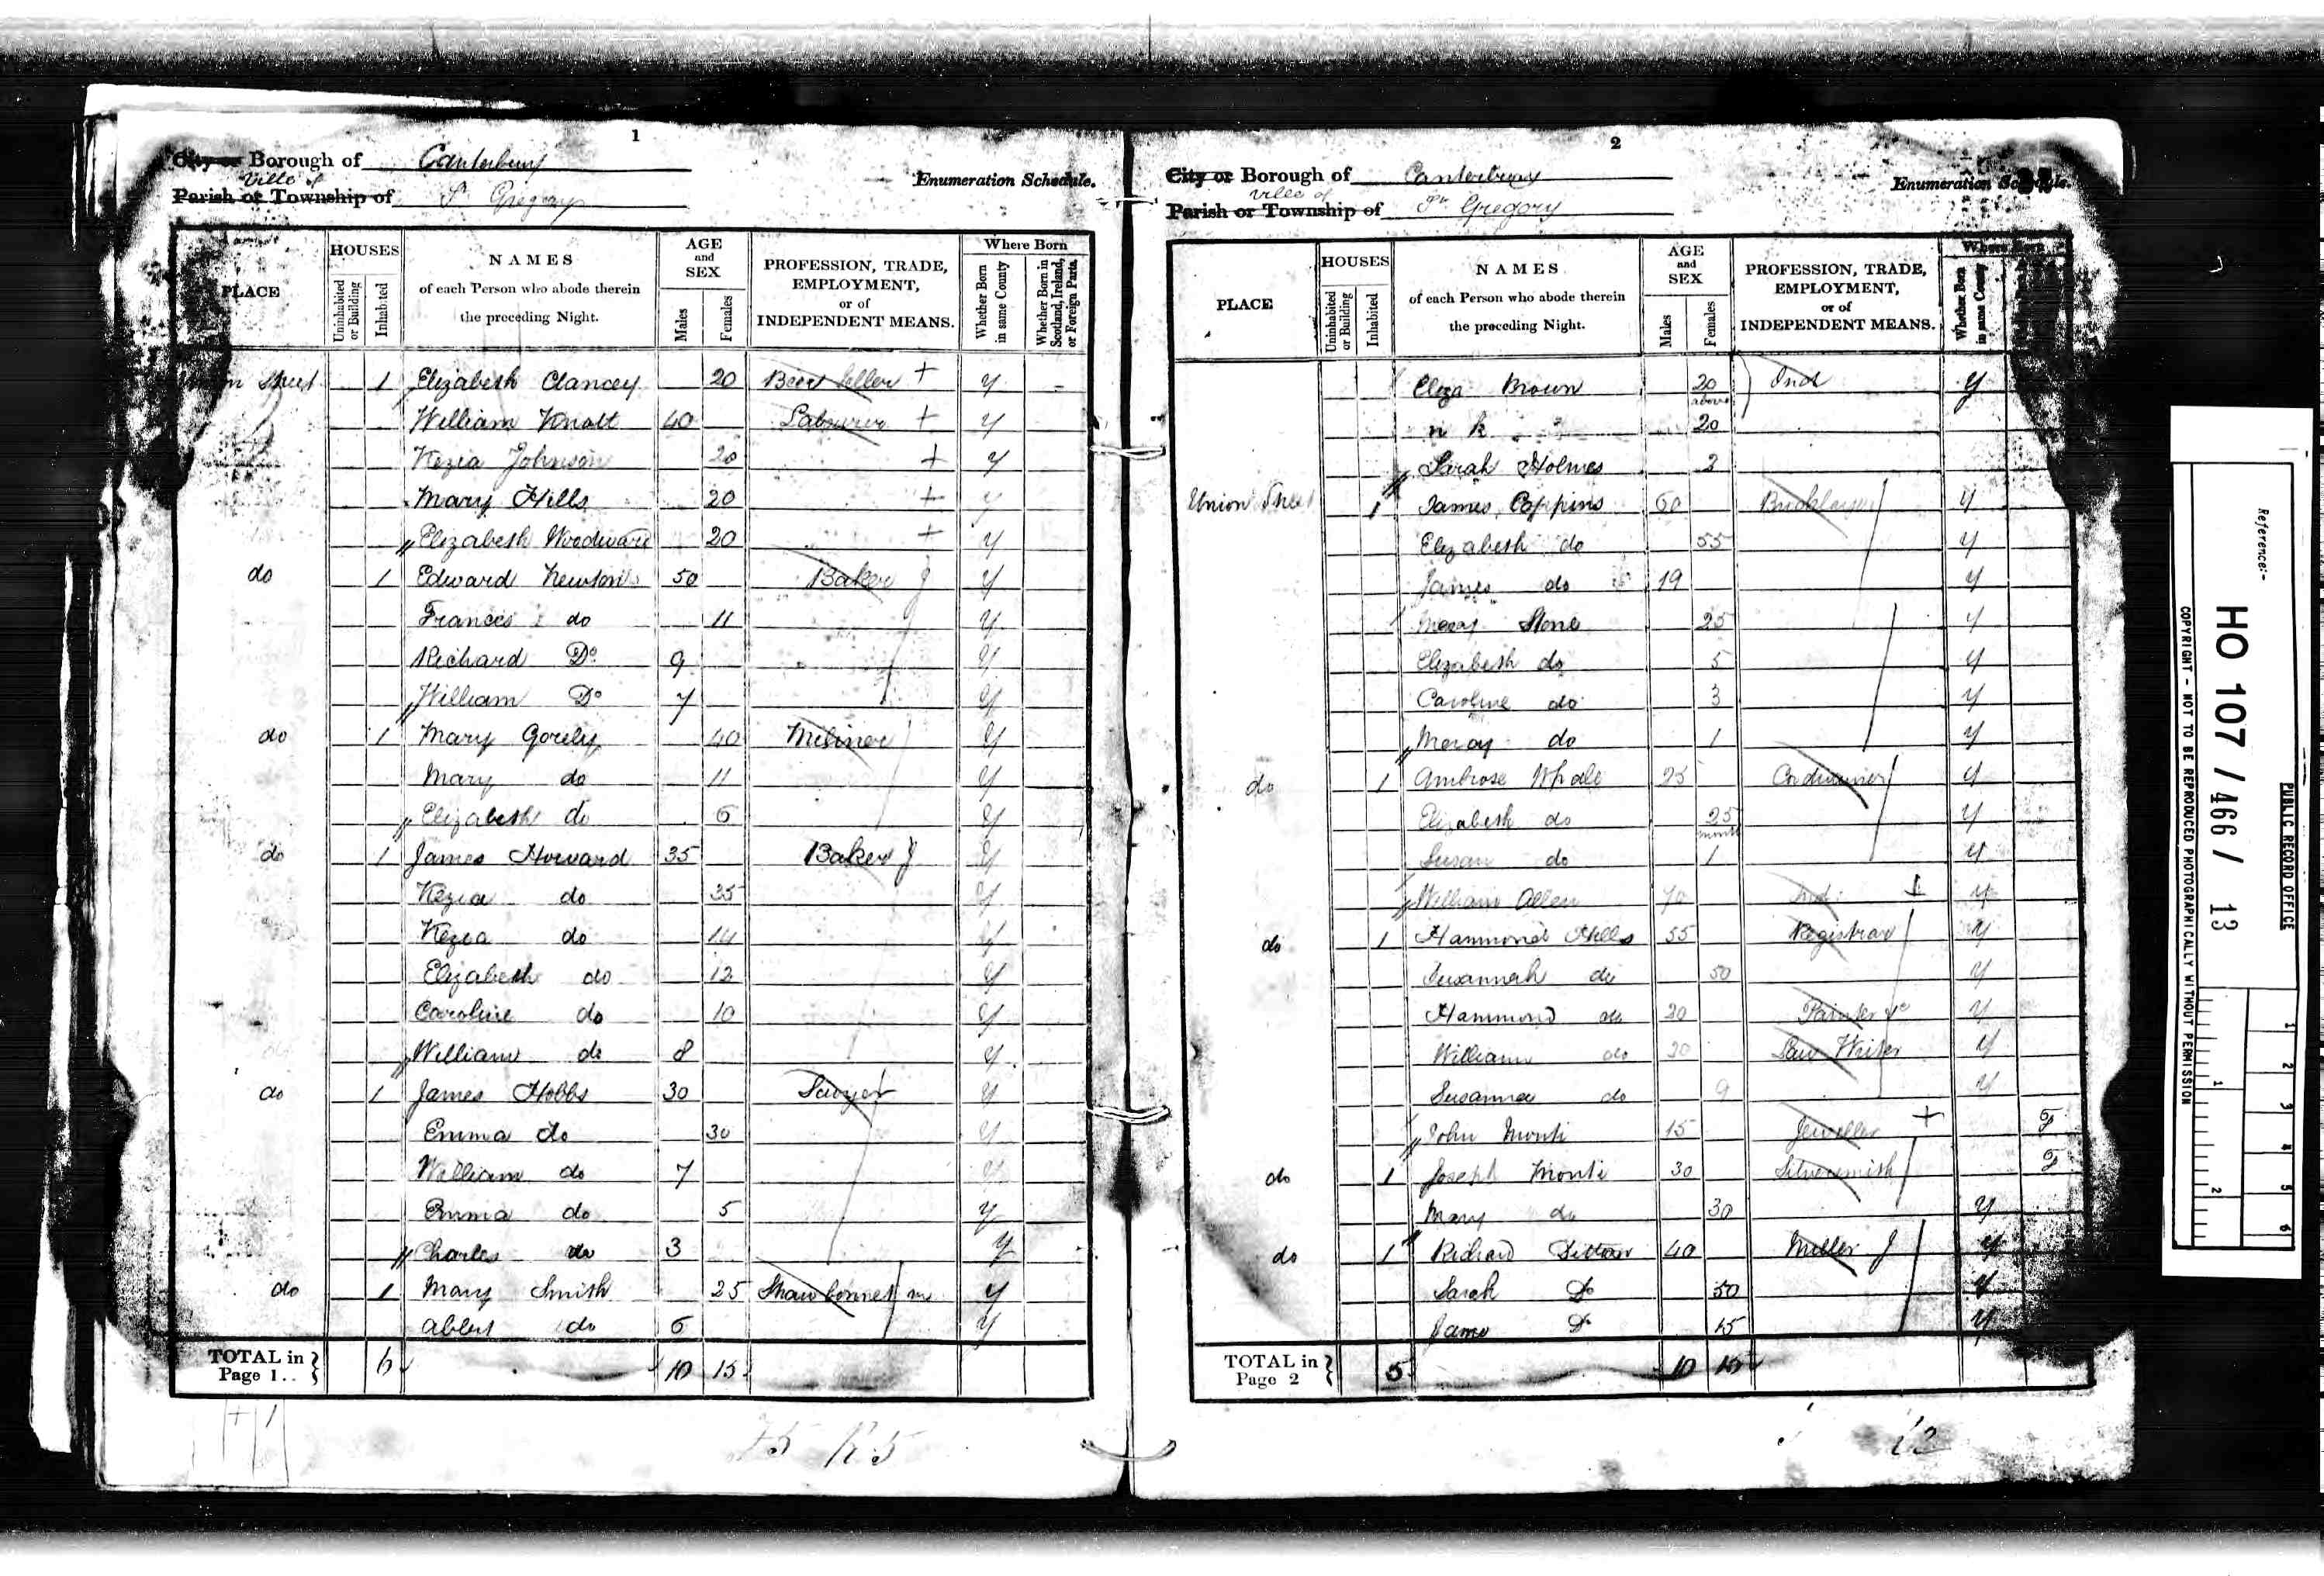 1
City or Borough of Canterbury
Enumeration Schedule.
Ville of
Parish or Township of St Gregory
PLACE
HOUSES
Uninhabited or Building
Inhabited
NAMES
of each Person who abode therein
the preceding Night.
AGE
and
SEX
Males
Females
PROFESSION, TRADE,
EMPLOYMENT,
or of
INDEPENDENT MEANS.
Where Born
Whether Born in same County
Whether Born in Scotland, Ireland, or Foreign Parts.
Street 1 Elizabeth Clancey 20 Beer Seller + Y -
William Knott 40 Labourer + Y
Kezia Johnson 20 + Y
Mary Hills 20 + Y
Elizabeth Woodward 20 + Y
do 1 Edward Newton 50 Baker J Y
Frances do 11 Y
Richard Do 9 Y
William Do 7 Y
do 1 Mary Gorely 40 Miliner Y
Mary do 11 Y
Elizabeth do 6 Y
do 1 James Howard 35 Baker J Y
Kezia do 35 Y
Kezia do 14 Y
Elizabeth do 12 Y
Caroline do 10 Y
William do 8 Y
do 1 James Hobbs 30 Sawyer Y
Emma do 30 Y
William do 7 Y
Emma do 5 Y
Charles do 3 Y
do 1 Mary Smith 25 Straw bonnet m Y
Albert do 6 Y
TOTAL in Page 1.. 6 10 15
+ 1
2
City or Borough of Canterbury
Enumeration Schedule.
Ville of
Parish or Township of St Gregory
PLACE
HOUSES
Uninhabited or Building
Inhabited
NAMES
of each Person who abode therein
the preceding Night.
AGE
and
SEX
Males
Females
PROFESSION, TRADE,
EMPLOYMENT,
or of
INDEPENDENT MEANS.
Where Born
Whether Born in same County
Eliza Brown 20 Ind Y
above
n k 20
Sarah Holmes 2
Union Street 1 James Coppins 60 Bricklayer Y
Elizabeth do 55 Y
James do 19 Y
Mercy Stone 25 Y
Elizabeth do 5 Y
Caroline do 3 Y
Mercy do 1 Y
do 1 Ambrose Whale 25 Cordwainer Y
Elizabeth do 25 Y
month
Susan do 1 Y
William Allen 70 Ind Y
do 1 Hammond Hills 55 Registrar Y
Susannah do 50 Y
Hammond do 20 Painter &c Y
William do 20 Law Writer Y
Susanna do 9 Y
John Monti 15 Jeweller + F
do 1 Joseph Monti 30 Silversmith F
Mary do 30 Y
do 1 Richard 40 Miller J Y
Sarah Do 50 Y
Jane Do 15 Y
TOTAL in Page 2 5 10 15
Reference:-
HO 107 / 466 / 13
PUBLIC RECORD OFFICE
COPYRIGHT - NOT TO BE REPRODUCED PHOTOGRAPHICALLY WITHOUT PERMISSION
1 2 3 4 5 6
1 2